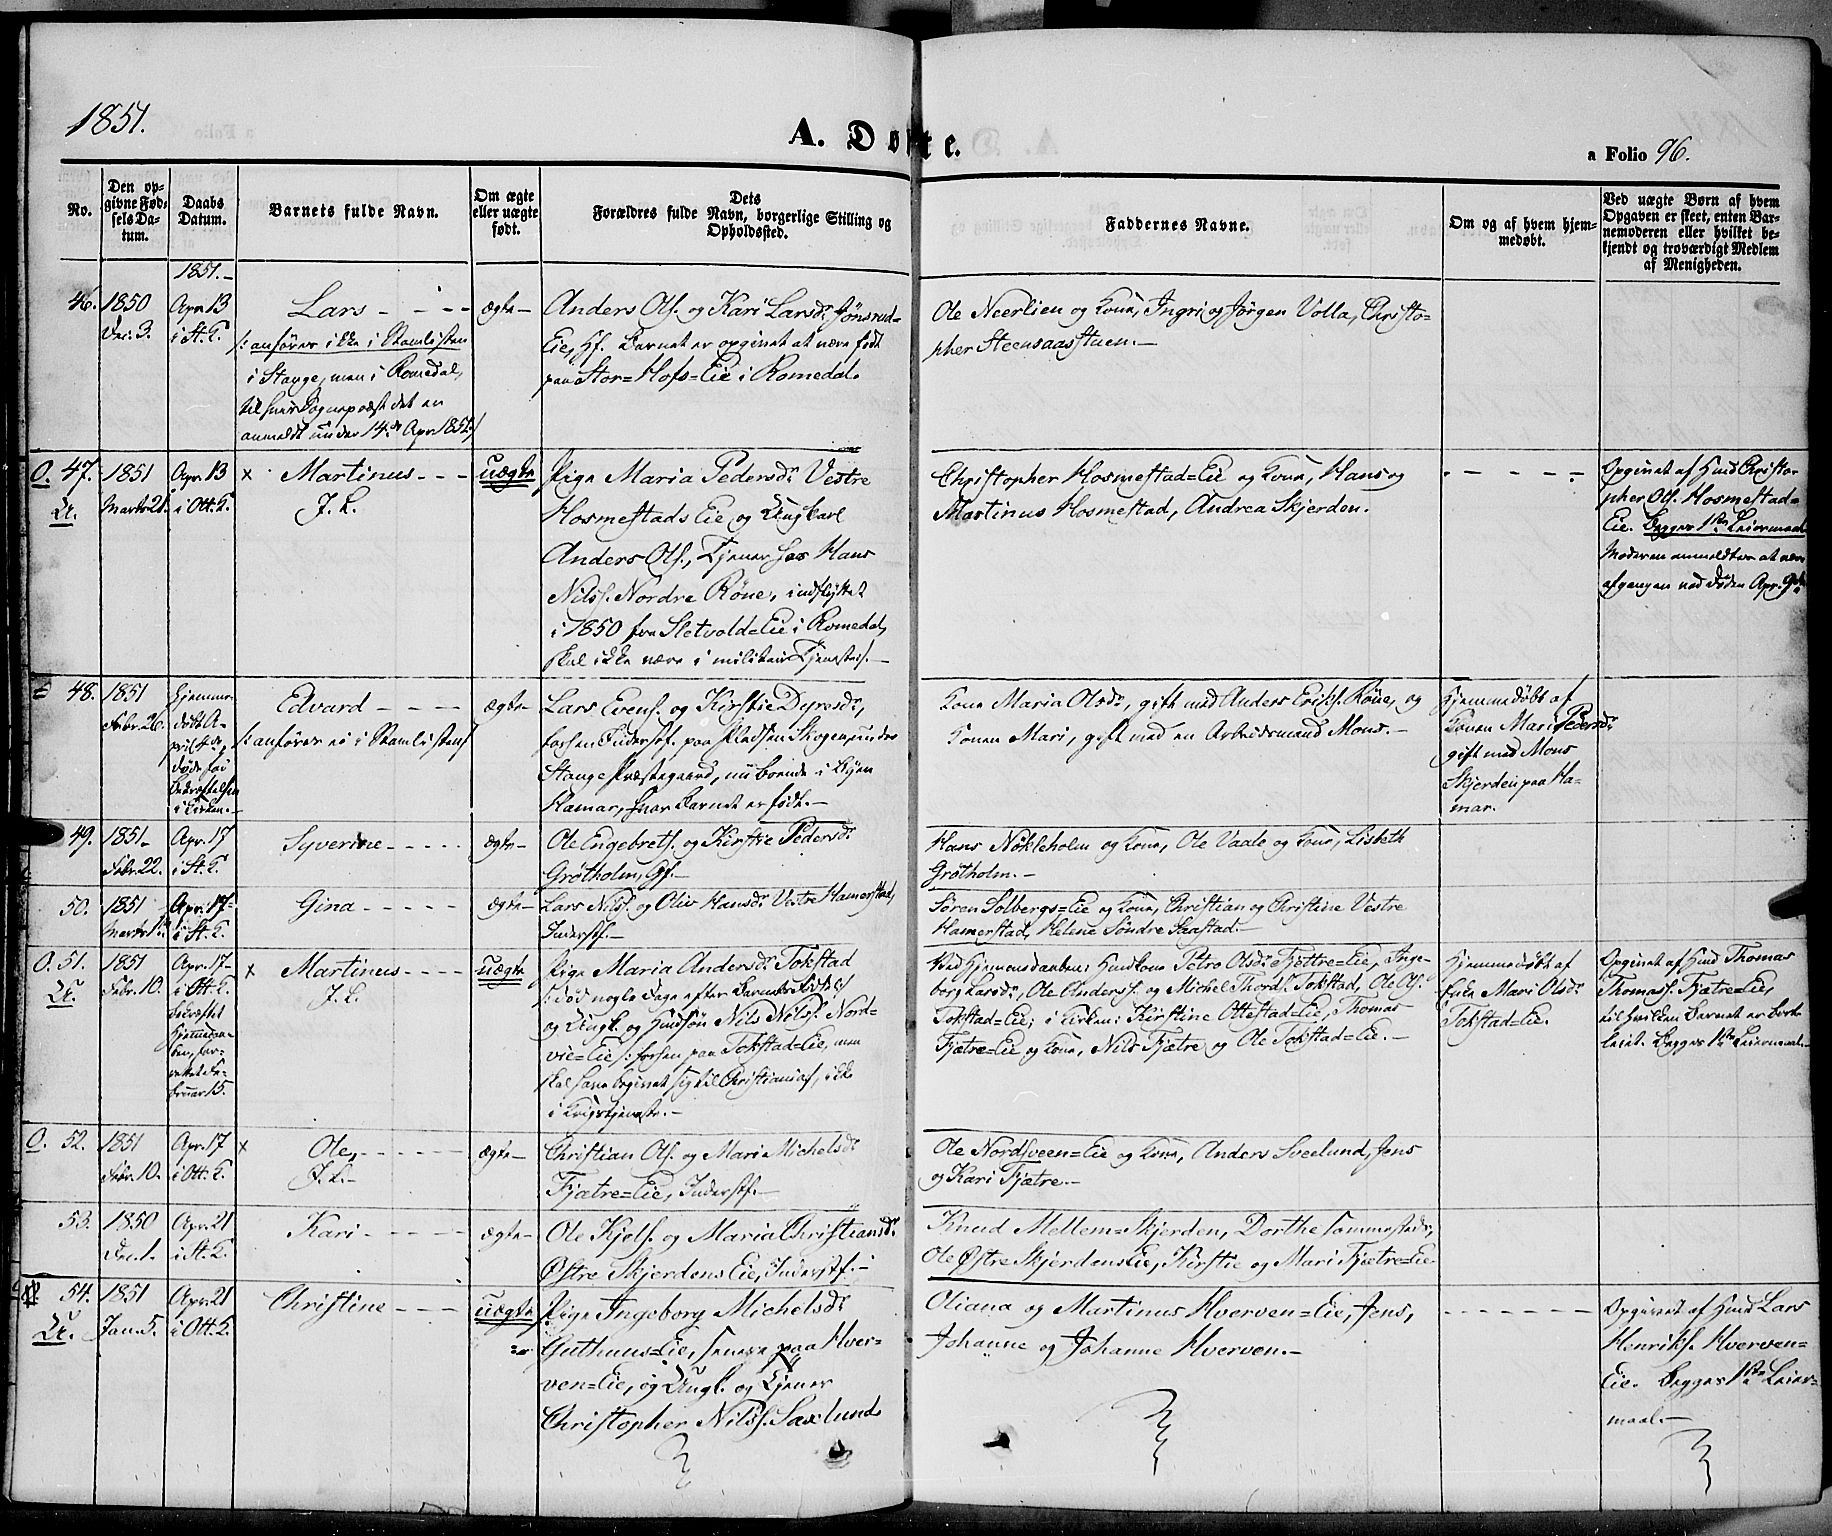 1851.
A. Døbte.
a Folio 96.
No.
Den op-
givne Fød-
sels Da-
tum.
Daabs
Datum.
Barnets fulde Navn.
Om ægte
eller uægte
født.
Dets
Forældres fulde Navn, borgerlige Stilling og
Opholdssted.
Faddernes Navne.
Om og af hvem hjem-
medøbt.
Ved uægte Børn af hvem
Opgaven er skeet, enten Bar-
nemoderen eller hvilket be-
kjendt og troværdigt Medlem
af Menigheden.
1851.-
46.
1850
Dec. 3.
Apr. 13
i St. K.
Lars - - -
/: anføres ikke i Stamlisten
i Stange, men i Romedal,
til hvis Sognepræst det er
anmeldt under 14de Apr. 1852 /
ægte-
Anders Ols. og Kari Larsdr. Jønsrud-
Eie, Hf. Barnet er opgivet at være født
paa Stor=Hofs=Eie i Romedal.
Ole Neerlien og Kone, Ingri og Jørgen Volla, Christo-
pher Steensaasstuen.-
O. 47.
U.
1851
Marts 21.
Apr. 13
i Ott. K.
x Martinus - - -
J. L.
uægte
Pige Maria Pedersdr. Vestre
Hosmestads Eie og Ungkarl
Anders Ols., Tjener hos Hans
Nilss. Nordre Røne, indflyttet
i 1850 fra Sletvold=Eie i Romedal,
skal ikke være i militair Tjeneste.-
Christopher Hosmestad=Eie og Kone, Hans og
Martinus Hosmestad, Andrea Skjerden.
- - - - -
Opgivet af Huusm. Christo-
pher Ols. Hosmestad=
Eie. Begges 1ste Leiermaal
Moderen anmeldtes at være
afgangen ved Døden Apr. 9de
48.
1851
Febr. 26.
Hjemme-
døbt A-
pril 4de,
døde før
Bekræftelsen
i Kirken.-
Edvard - - - -
/: anføres ei i Stamlisten /
ægte-
Lars Evens. og Kirstie Dyresdr.,
forhen Inderstf. paa Pladsen Skogen under
Stange Præstegaard, nu boende i Byen
Hamar, hvor Barnet er født.-
Kone Maria Olsdr., gift med Anders Erikss. Røne, og
Konen Mari, gift med en Arbeidsmand Mons.-
Hjemmedøbt af
Konen Mari Pedersdr.
gift med Mons
Skjerden paa Ha-
mar.
49.
1851.
Febr. 22.
Apr. 17
i St. K.
Syverine - - - - -
ægte-
Ole Engebrets. og Kirstie Pedersdr.
Grøtholm, Gf.-
Hans Nøkleholm og Kone, Ole Vaale og Kone, Lisbeth
Grøtholm.-
50.
1851
Marts 1ste
Apr. 17-
i St. K.
Gina - - - - -
ægte-
Lars Nilss. og Oliv Hansdr. Vestre Hamerstad,
Inderstf.-
Søren Solbergs=Eie og Kone, Christian og Christine Vestre
Hamerstad, Helene Søndre Saastad.-
O. 51.
U.
1851
Febr. 10.
Apr. 17-
i Ott. K.
bekræftet
Hjemmedaa-
ben, for-
rettet Fe-
bruar 15.
x Martinus - - - -
J. L.
uægte
Pige Maria Andersdr. Tokstad
/: død nogle Dage efter Barnets Fødsel /
og Ungk. og Huusm.søn Nils Nilss. Nord-
vie=Eie, /: forhen paa Tokstad=Eie, men
skal have begivet sig til Christiania /, ikke
i Krigstjeneste.-
Ved Hjemmedaaben: Huuskone Petra Olsdr. Fjættre=Eie, Inge-
borg Larsdr., Ole Anderss. og Michel Thordss. Tokstad, Ole Ols.
Tokstad=Eie; i Kirken: Kirstine Ottestad=Eie, Thomas
Fjætre=Eie og Kone, Nils Fjætre og Ole Tokstad=Eie.-
Hjemmedøbt af
Enke Mari Olsdr.
Tokstad=Eie.
Opgivet af Huusm. Thomas
Thomass. Fjætre=Eie,
til hvilken Barnet er bort-
leiet. Begges 1ste Leiermaal.-
O. 52.
1851
Febr. 10.
Apr. 17
i Ott. K.
x Ole, - - - - -
J. L.-
ægte-
Christian Ols. og Mari Michelsdr.
Fjætre=Eie, Inderstf.-
Ole Nordsveen=Eie og Kone, Anders Sveelund, Jens
og Kari Fjætre.-
53.
1850
Dec. 1.
Apr. 21
i St. K.
Kari - - - - -
ægte-
Ole Kjels. og Maria Christiansdr.
Østre Skjerdens Eie, Inderstf.-
Knud Mellem=Skjerden, Dorthe Sammestedr,
Ole Østre Skjerdens Eie, Kirstie og Mari Fjætre=Eie
54.
U.
1851
Jan. 5.
Apr. 21
i Ott. K.
Christine - - -
uægte
Pige Ingeborg Michelsdr.
Guthuus=Eie, senere paa Hver-
ven=Eie, og Ungk. og Tjener
Christopher Nilss. Saxlund
Oliana og Martinus Hverven=Eie, Jens,
Johanne og Johanne Hverven.-
- - - - - -
Opgivet af Huusm. Lars
Henriks. Hverven=
Eie. Begges 1ste Leier-
maal.-